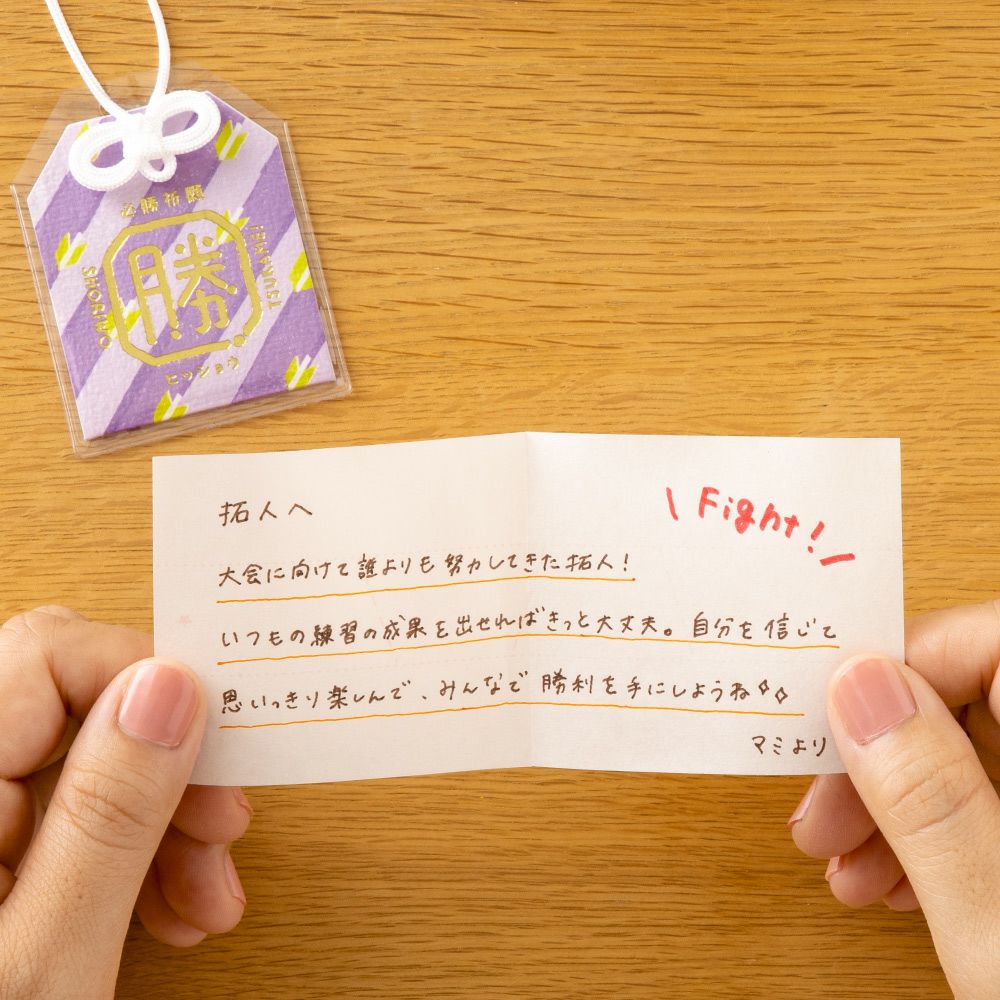 必勝祈願
SHOURI O
勝
TSUKAME!
ヒッショウ
拓人へ
\ Fight! /
大会に向けて誰よりも努力してきた拓人!
いつもの練習の成果を出せればきっと大丈夫。自分を信じて
思いっきり楽しんで、みんなで勝利を手にしようね
マミより